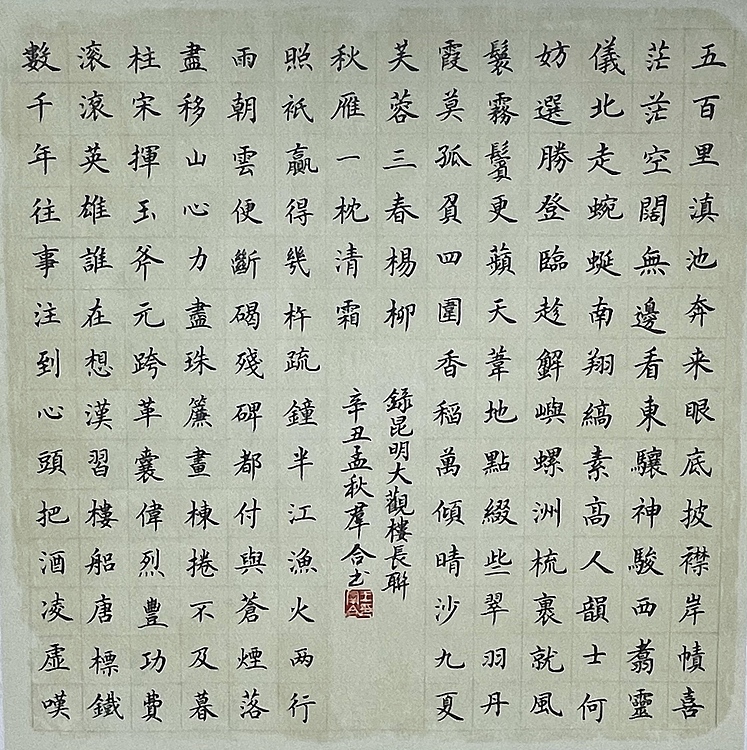 五百里滇池奔来眼底披襟岸幘喜
茫茫空闊無邊看東驤神駿西翥靈
儀北走蜿蜒南翔縞素高人韻士何
妨選勝登臨趁蠏嶼螺洲梳裹就風
鬟霧鬢更蘋天葦地點綴些翠羽丹
霞莫孤負四圍香稻萬傾晴沙九夏
芙蓉三春楊柳
數千年往事注到心頭把酒凌虛嘆
滾滾英雄誰在想漢習樓船唐標鐵
柱宋揮玉斧元跨革囊偉烈豐功費
盡移山心力盡珠簾畫棟捲不及暮
雨朝雲便斷碣殘碑都付與蒼煙落
照衹贏得幾杵疏鐘半江漁火两行
秋雁一枕清霜
錄昆明大觀樓長聯
辛丑孟秋羣合书